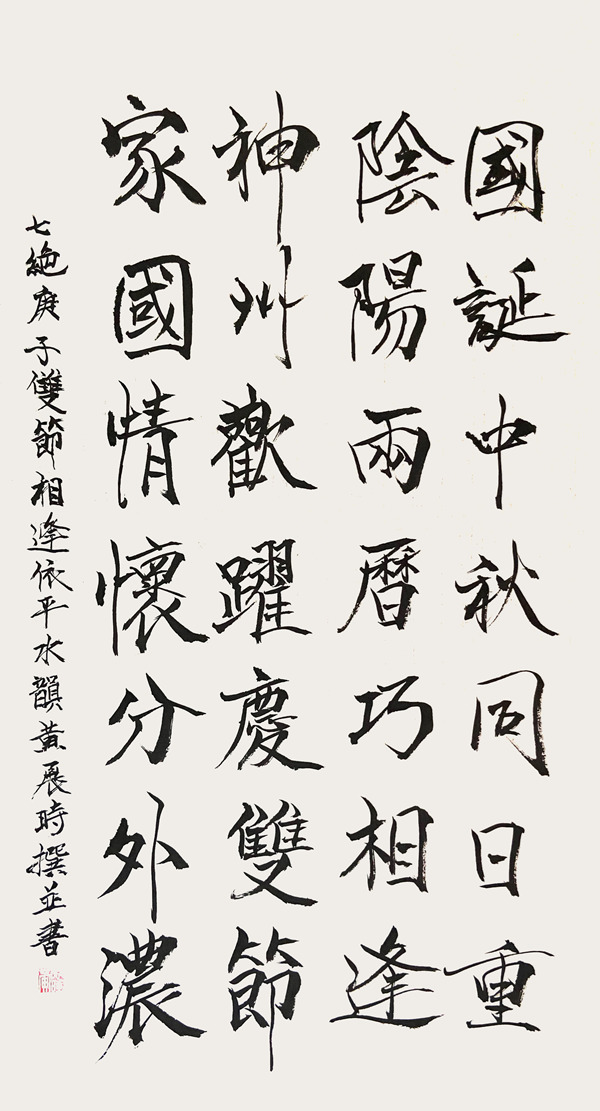 國誕中秋同日重
陰陽兩曆巧相逢
神州歡躍慶雙節
家國情懷分外濃
七絶庚子雙節相逢依平水韻黃展時撰並書